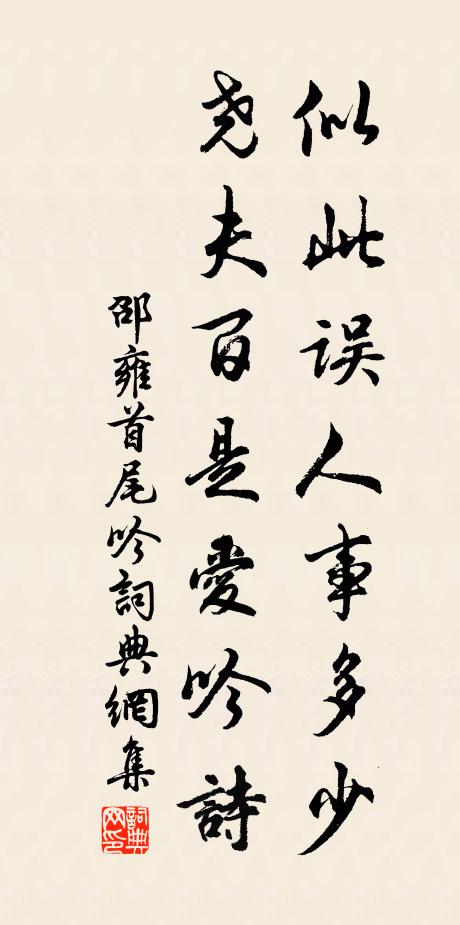 似此误人事多少
尧夫百是愛吟詩
邵雍首尾吟詞典網集
詞典网印